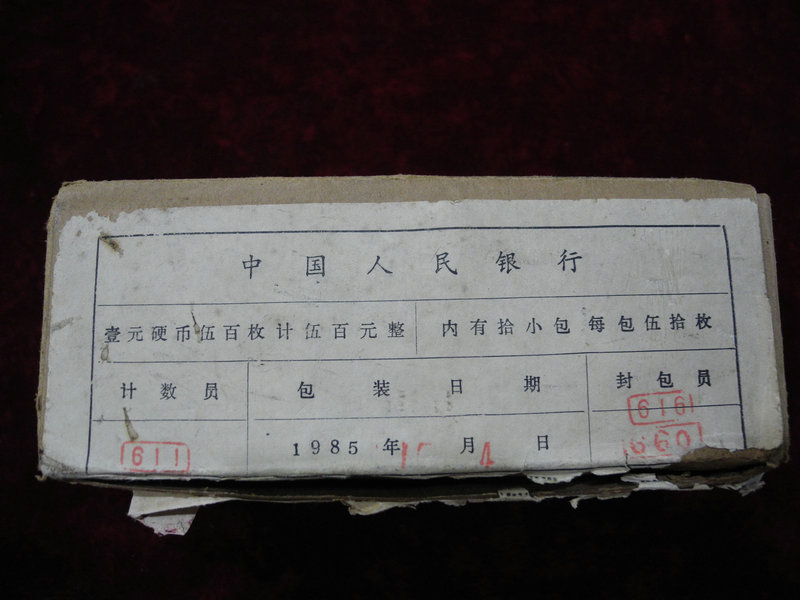 中国人民银行
壹元硬币伍百枚计伍百元整 内有拾小包每包伍拾枚
计数员 包装日期 封包员
616
611 1985年 月4日 660